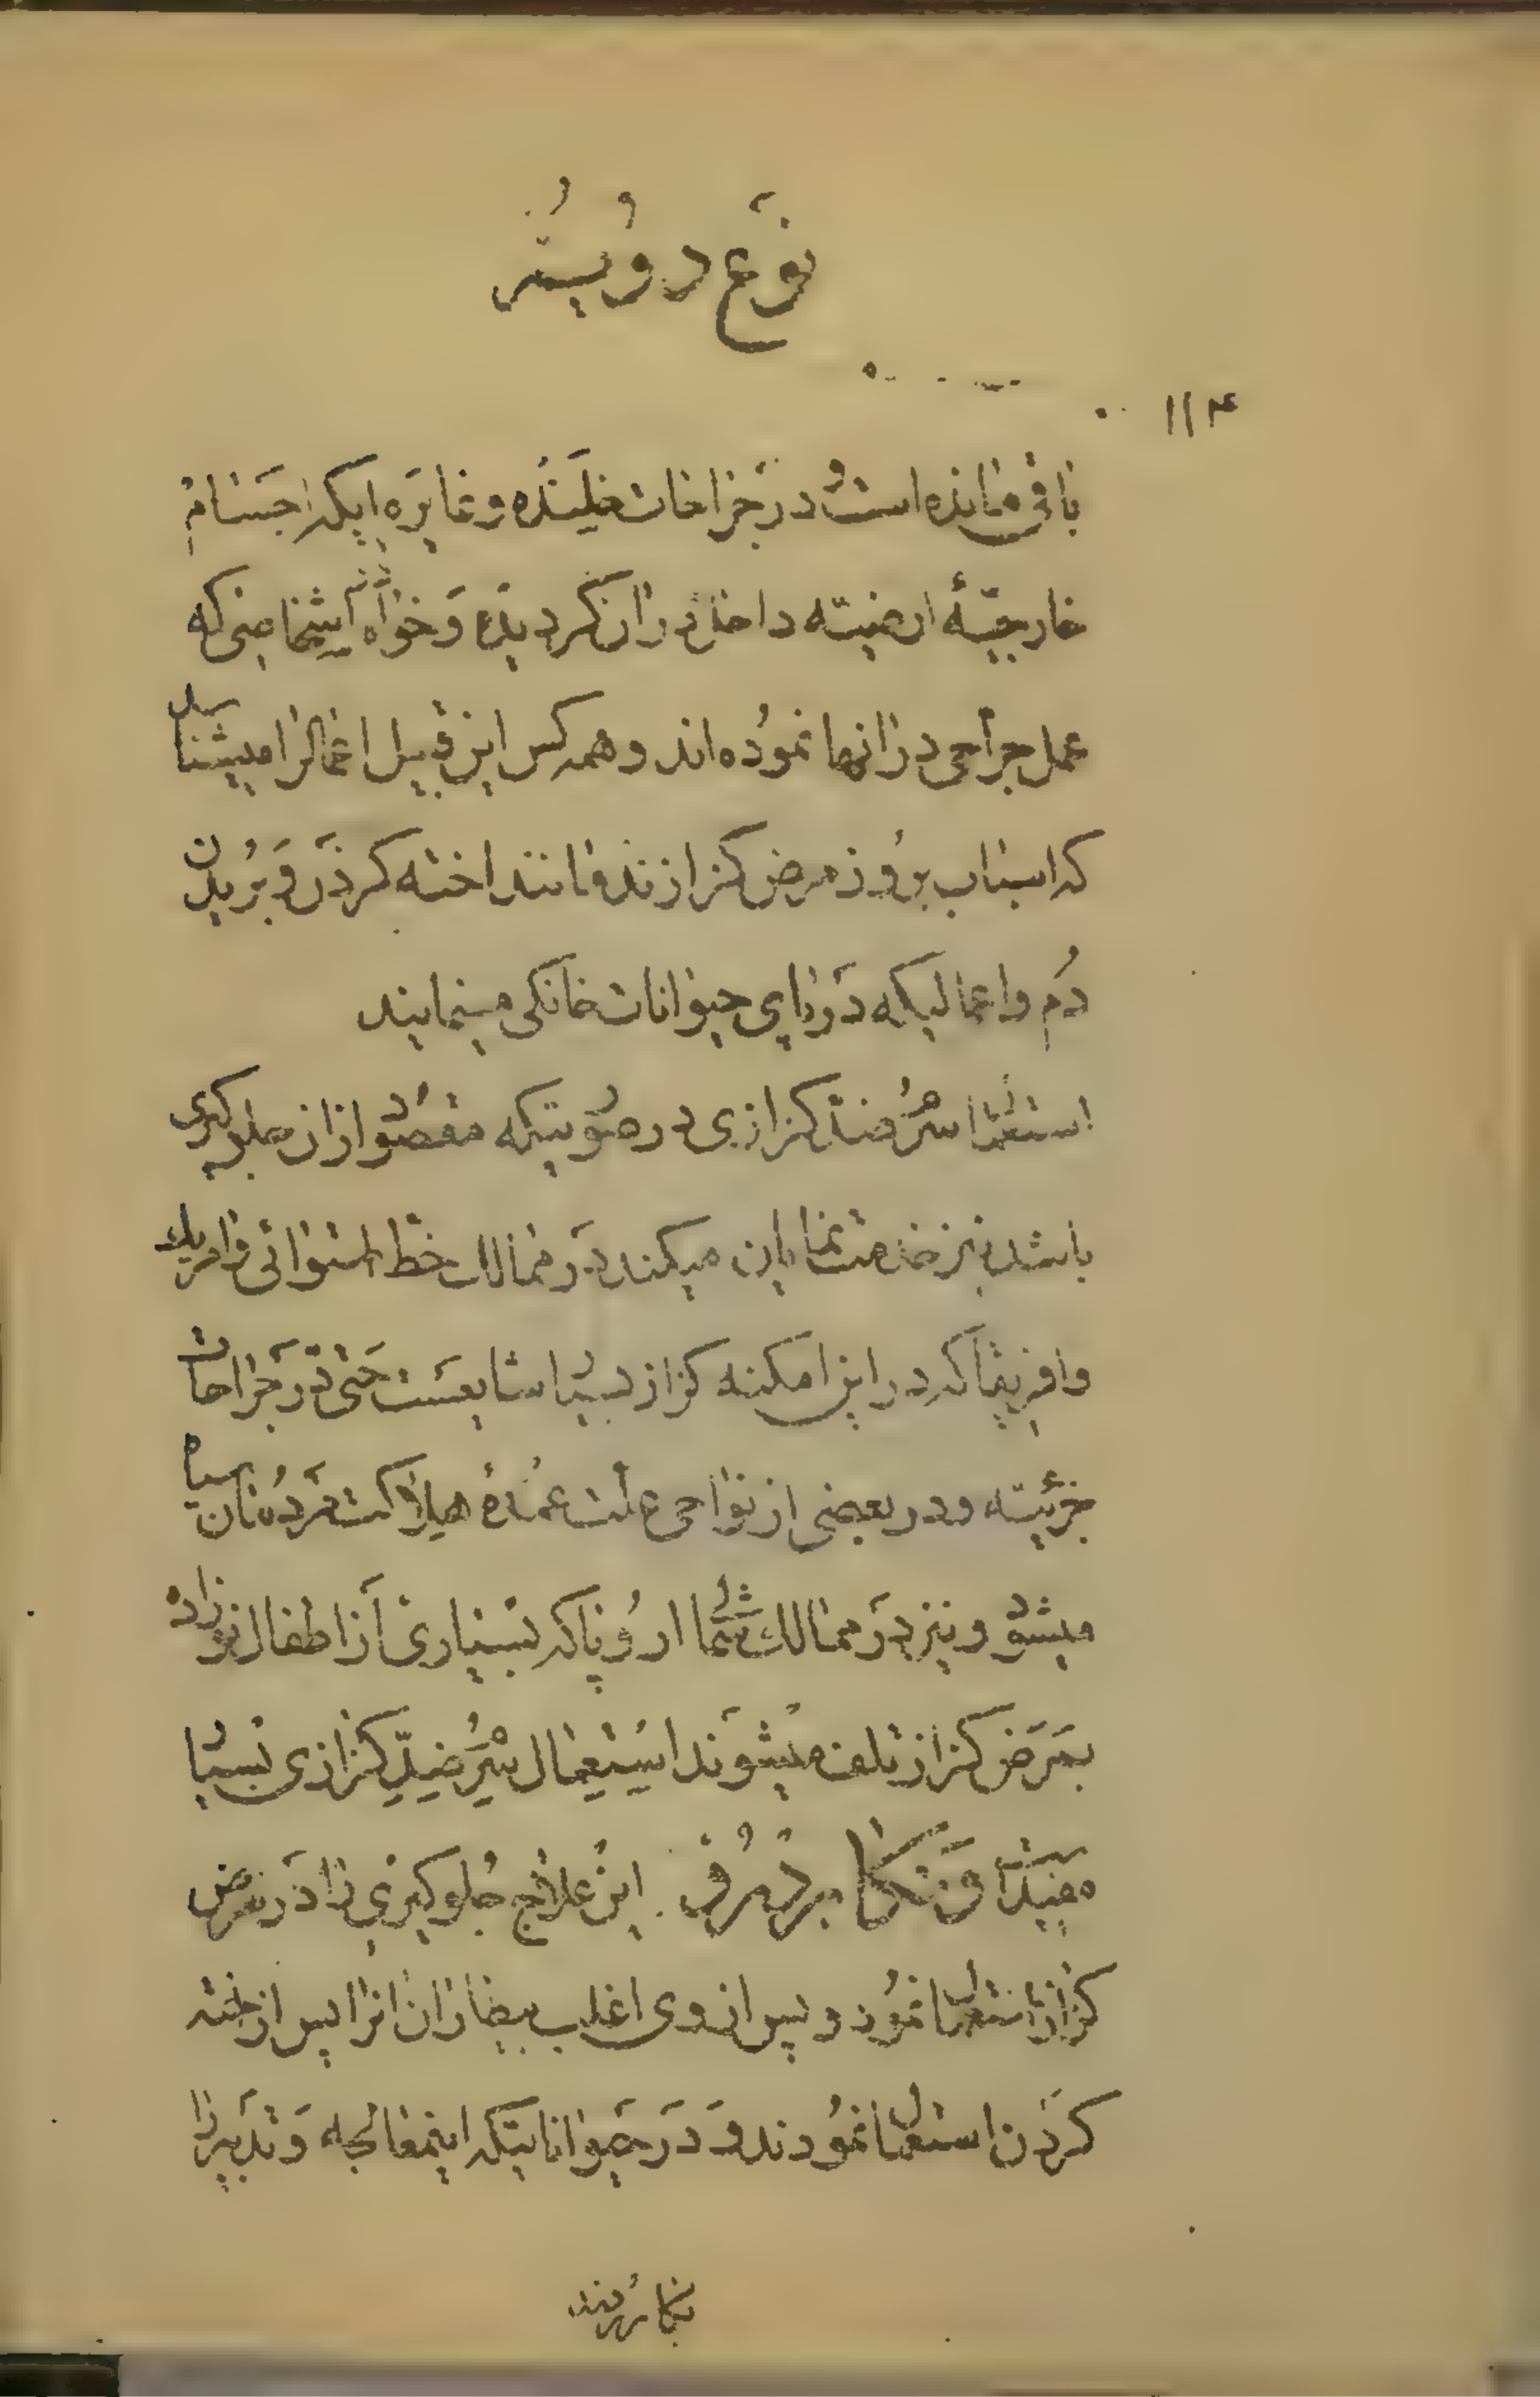 نوع دویستم
۱۱۴
باقی مانده است و در جراحات خلیده و غایره اینکه اجسام
خارجیهٔ ارضیه داخل در آن گردیده و خواه اشخاصی که
عمل جراحی در آنها نموده‌اند و همه کس این قبیل اعمال را میشناسد
که اسباب بروز مرض کزازند مانند اخته کردن و بریدن
دُم و اعمالیکه در پای حیوانات خانگی مینمایند
استعمال سرم ضد کزازی در صورتیکه مقصود از آن جلوگیری
باشد نیز خدمت نمایان میکند در ممالک خط استوائی و امریک
و افریقا که در این امکنه کزاز بسیار شایعست حتی در جراحات
جزئیه و در بعضی از نواحی علت عمدهٔ هلاکت مردمان سیاه
میشود و نیز در ممالک شمال اروپا که بسیاری از اطفال نوزاد
بمرض کزاز تلف میشوند استعمال سرم ضد کزازی بسیار
مفید است این علاج جلوگیری را در مرض
کزاز استعمال نمود و پس از وی اغلب بیطاران آنرا پس از اخته
کردن استعمال نمودند و در حیواناتیکه اینمعالجه و تدبیر را
بکار بردند